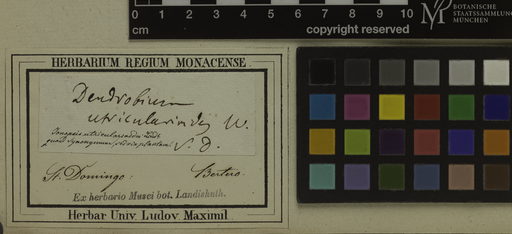 0 1 2 3 4 5 6 7 8 9 10
cm copyright reserved
BOTANISCHE
STAATSSAMMLUNG
MÜNCHEN
HERBARIUM REGIUM MONACENSE.
Dendrobium
utricularioides W.
Jonopsis utricularioides Lindl.
quoad Synonymum
S. D.
St. Domingo: Bertero.
Ex herbario Musei bot. Landishuth.
Herbar Univ. Ludov. Maximil